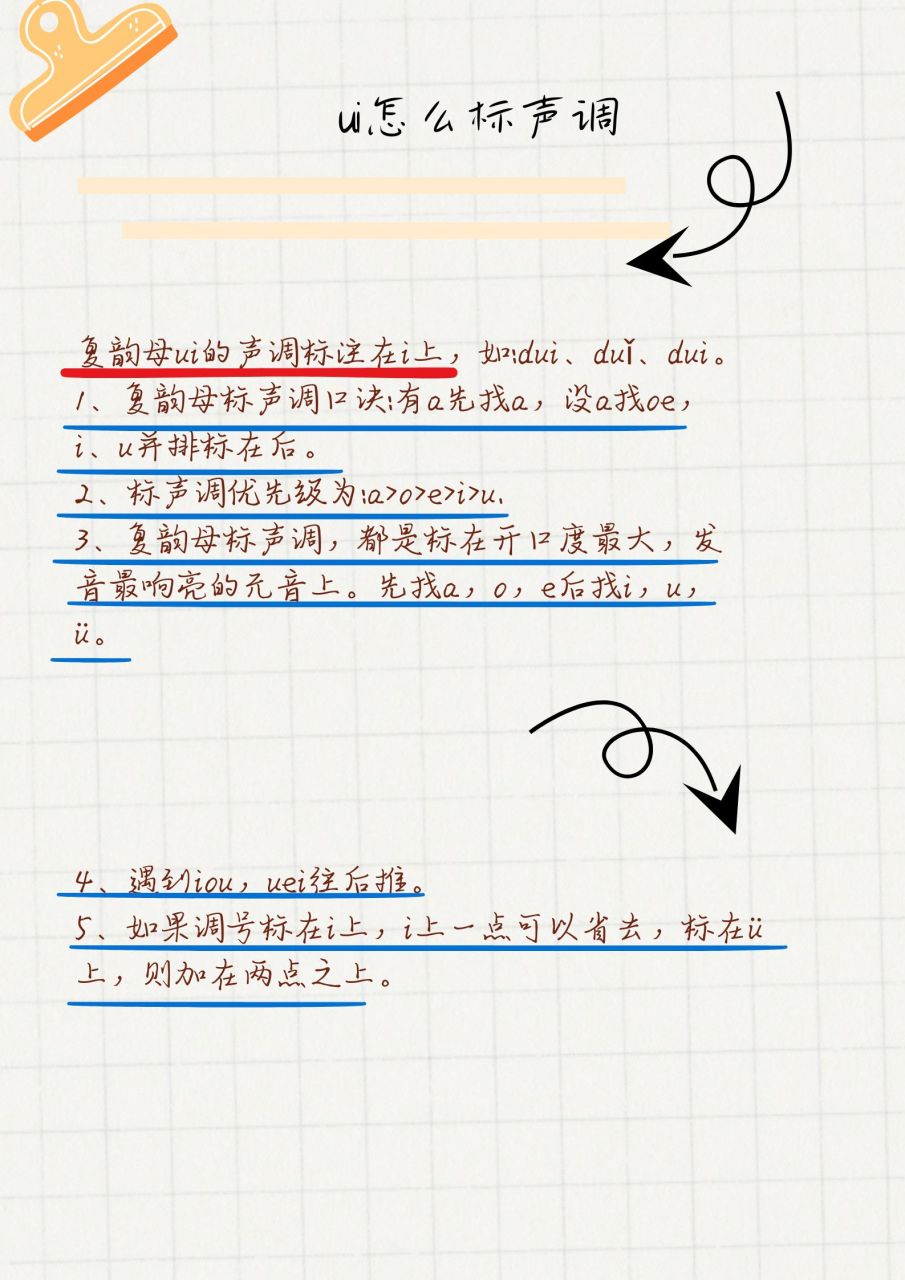 ui怎么标声调
复韵母ui的声调标注在i上，如:dui、duǐ、dui。
1、复韵母标声调口诀:有a先找a，没a找oe，
i、u并排标在后。
2、标声调优先级为:a>o>e>i>u.
3、复韵母标声调，都是标在开口度最大，发
音最响亮的元音上。先找a，o，e后找i，u，
ü。
4、遇到iou，uei往后推。
5、如果调号标在i上，i上一点可以省去，标在ü
上，则加在两点之上。